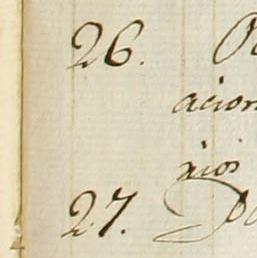 26.
acion
nios
27.